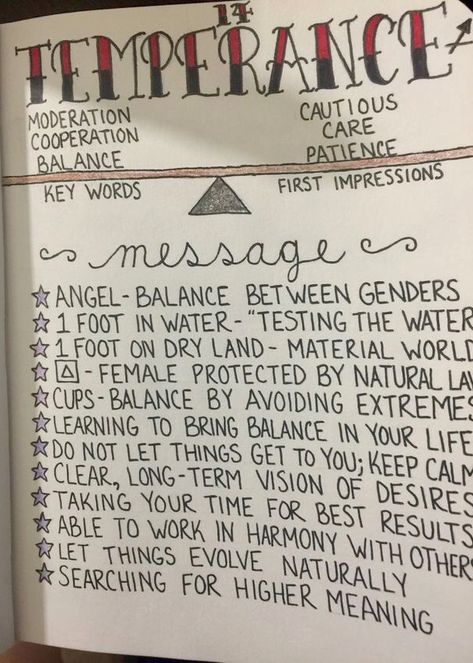 14
TEMPERANCE
MODERATION
COOPERATION
BALANCE
KEY WORDS
CAUTIOUS
CARE
PATIENCE
FIRST IMPRESSIONS
message
ANGEL - BALANCE BETWEEN GENDERS
1 FOOT IN WATER - "TESTING THE WATER
1 FOOT ON DRY LAND - MATERIAL WORLD
- FEMALE PROTECTED BY NATURAL LA
CUPS - BALANCE BY AVOIDING EXTREMES
LEARNING TO BRING BALANCE IN YOUR LIFE
DO NOT LET THINGS GET TO YOU; KEEP CALM
CLEAR, LONG-TERM VISION OF DESIRES
TAKING YOUR TIME FOR BEST RESULTS
ABLE TO WORK IN HARMONY WITH OTHER
LET THINGS EVOLVE NATURALLY
SEARCHING FOR HIGHER MEANING